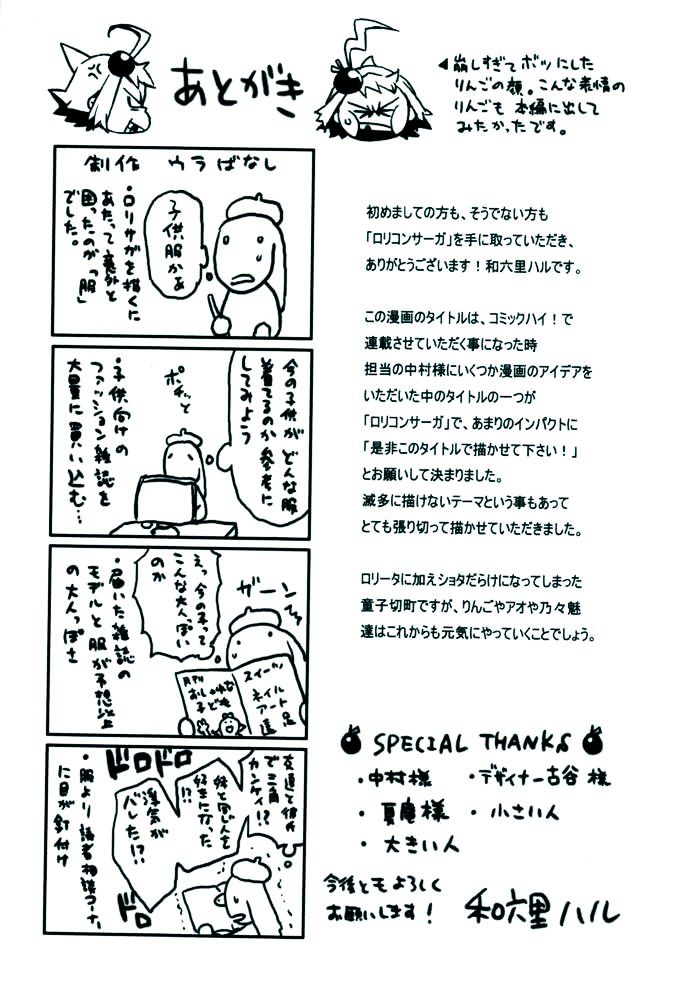 あとがき
◀崩しすぎてボツにした
りんごの顔。こんな表情の
りんごも本編に出して
みたかったです。
制作 ウラばなし
・ロリサガを描くに
あたって意外と
困ったのが「服」
でした。
子供服かぁ
今の子供がどんな服
着てるのか参考に
してみよう
ポチッと
・子供向けの
ファッション雑誌を
大量に買い込む…
ガーン
えっ今の子って
こんな大人っぽい
のか
・届いた雑誌の
モデルと服が予想以上
の大人っぽさ
月刊
おしゃれな
子ども
スイーツ
ネイル
アート
友達と彼氏
で三角
カンケイ!?
妹と同じ人を
好きになった
!?
浮気が
バレた!?
ドロドロ
ドロ
・服より読者相談コーナー
に目が釘付け
初めましての方も、そうでない方も
「ロリコンサーガ」を手に取っていただき、
ありがとうございます！和六里ハルです。
この漫画のタイトルは、コミックハイ！で
連載させていただく事になった時
担当の中村様にいくつか漫画のアイデアを
いただいた中のタイトルの一つが
「ロリコンサーガ」で、あまりのインパクトに
「是非このタイトルで描かせて下さい！」
とお願いして決まりました。
滅多に描けないテーマという事もあって
とても張り切って描かせていただきました。
ロリータに加えショタだらけになってしまった
童子切町ですが、りんごやアオや乃々魅
達はこれからも元気にやっていくことでしょう。
SPECIAL THANKS
・中村様 ・デザイナー古谷様
・夏庵様 ・小さい人
・大きい人
今後ともよろしく
お願いします！ 和六里ハル